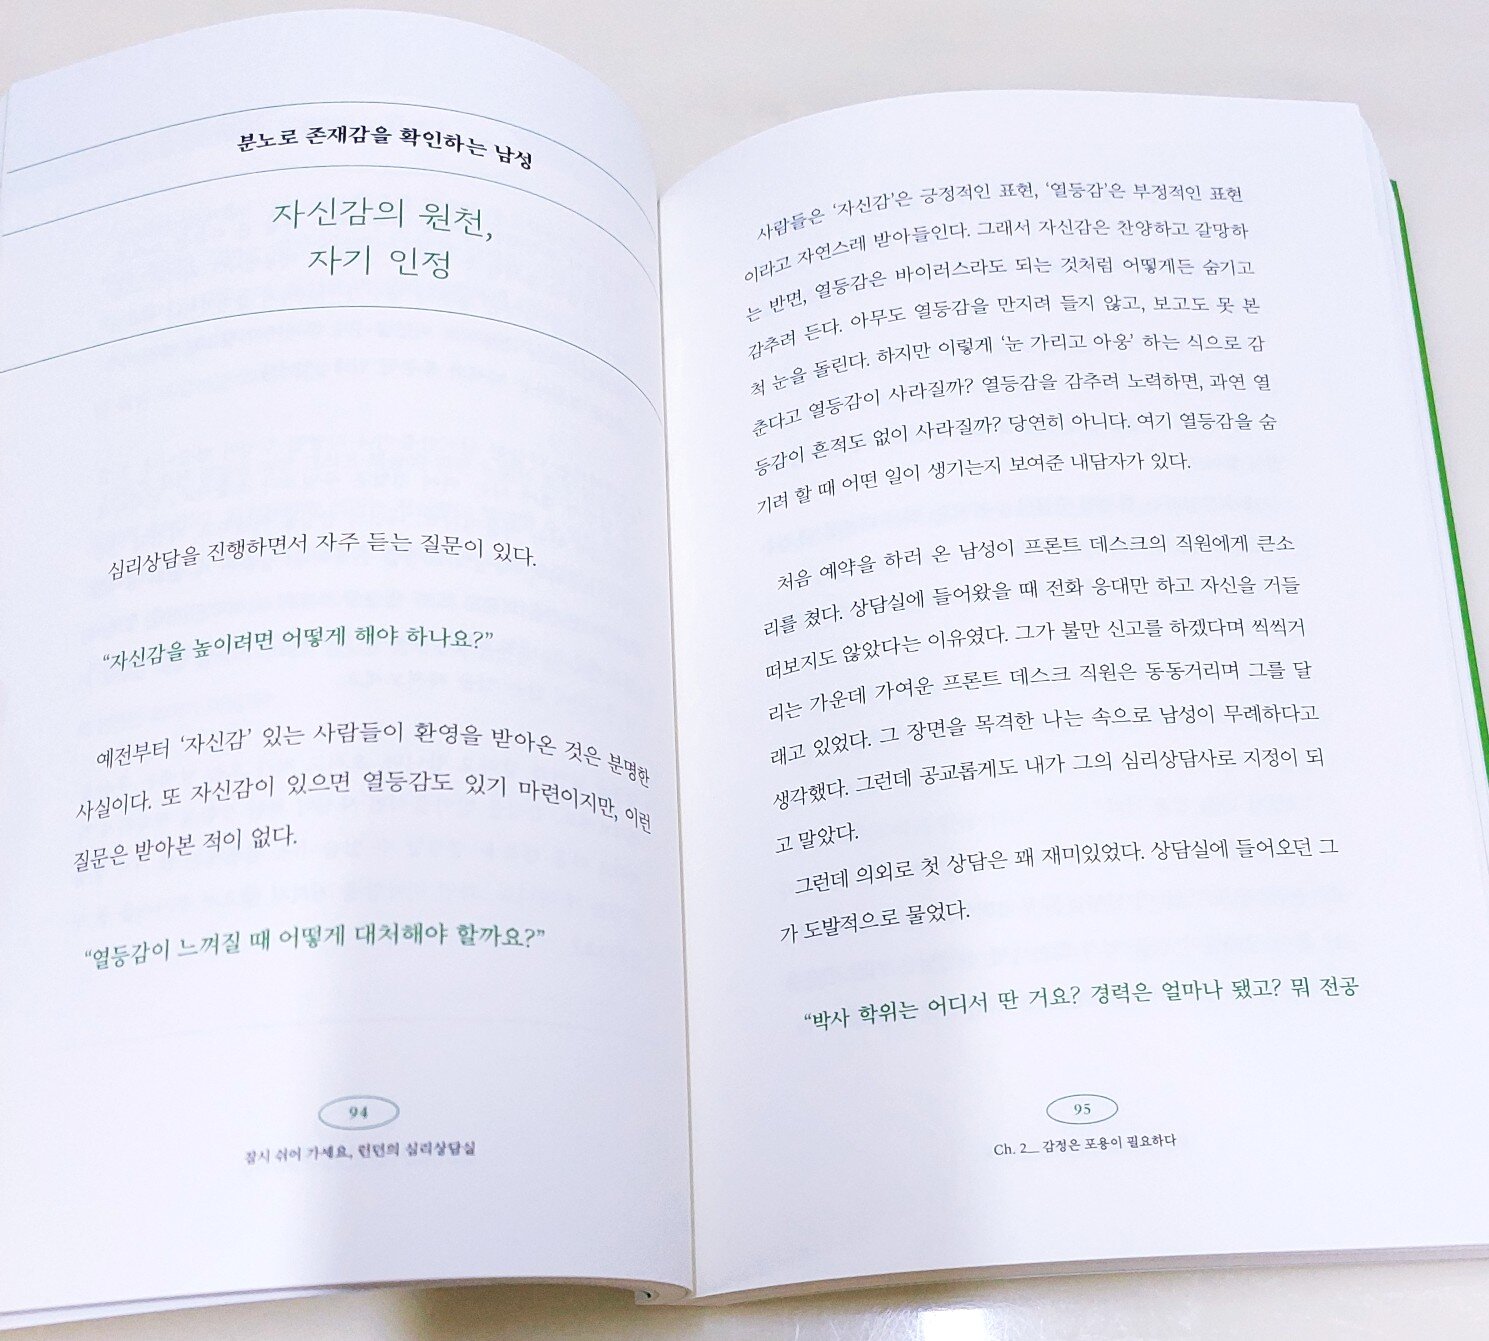 분노로 존재감을 확인하는 남성
자신감의 원천,
자기 인정
심리상담을 진행하면서 자주 듣는 질문이 있다.
“자신감을 높이려면 어떻게 해야 하나요?”
예전부터 ‘자신감’ 있는 사람들이 환영을 받아온 것은 분명한
사실이다. 또 자신감이 있으면 열등감도 있기 마련이지만, 이런
질문은 받아본 적이 없다.
“열등감이 느껴질 때 어떻게 대처해야 할까요?”
94
잠시 쉬어 가세요, 런던의 심리상담실
사람들은 ‘자신감’은 긍정적인 표현, ‘열등감’은 부정적인 표현
이라고 자연스레 받아들인다. 그래서 자신감은 찬양하고 갈망하
는 반면, 열등감은 바이러스라도 되는 것처럼 어떻게든 숨기고
감추려 든다. 아무도 열등감을 만지려 들지 않고, 보고도 못 본
척 눈을 돌린다. 하지만 이렇게 ‘눈 가리고 아웅’ 하는 식으로 감
춘다고 열등감이 사라질까? 열등감을 감추려 노력하면, 과연 열
등감이 흔적도 없이 사라질까? 당연히 아니다. 여기 열등감을 숨
기려 할 때 어떤 일이 생기는지 보여준 내담자가 있다.
처음 예약을 하러 온 남성이 프론트 데스크의 직원에게 큰소
리를 쳤다. 상담실에 들어왔을 때 전화 응대만 하고 자신을 거들
떠보지도 않았다는 이유였다. 그가 불만 신고를 하겠다며 씩씩거
리는 가운데 가여운 프론트 데스크 직원은 동동거리며 그를 달
래고 있었다. 그 장면을 목격한 나는 속으로 남성이 무례하다고
생각했다. 그런데 공교롭게도 내가 그의 심리상담사로 지정이 되
고 말았다.
그런데 의외로 첫 상담은 꽤 재미있었다. 상담실에 들어오던 그
가 도발적으로 물었다.
“박사 학위는 어디서 딴 거요? 경력은 얼마나 됐고? 뭐 전공
95
Ch. 2__ 감정은 포용이 필요하다